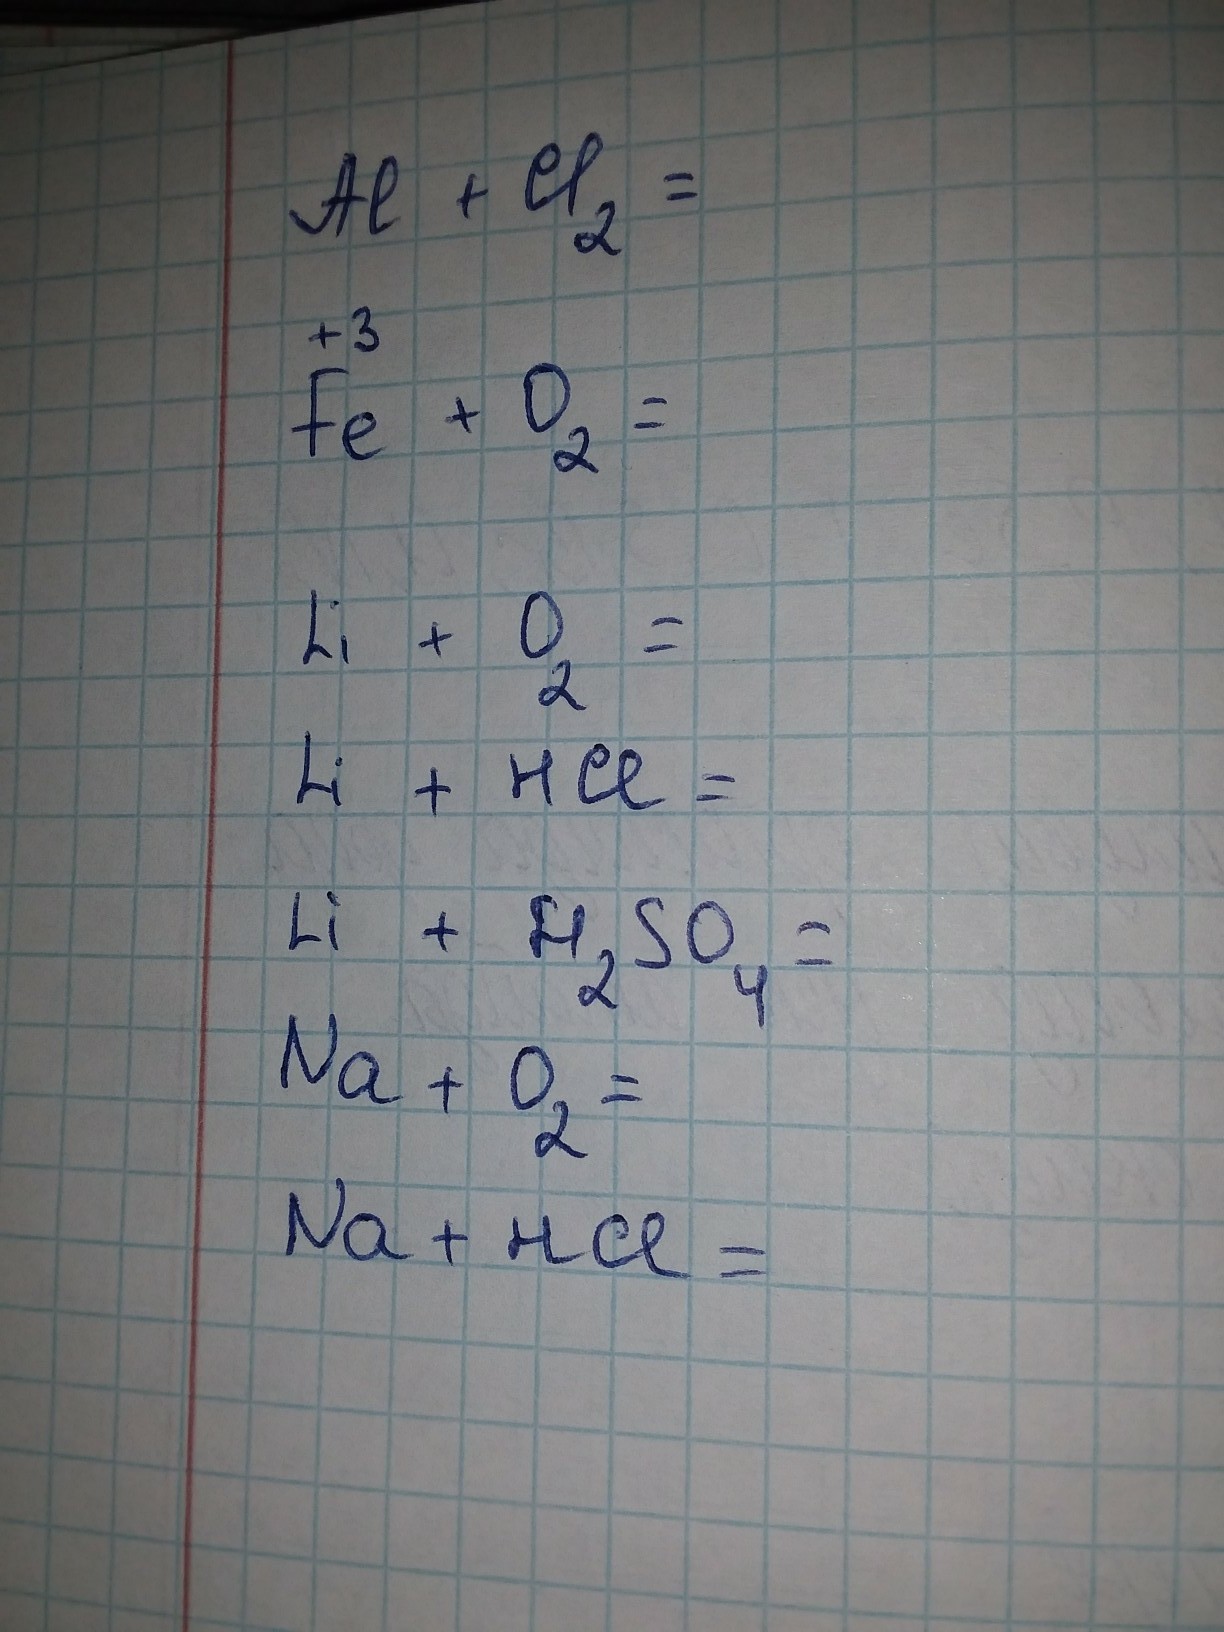 Al + Cl₂ =
+3
Fe + O₂ =
Li + O₂ =
Li + HCl =
Li + H₂SO₄ =
Na + O₂ =
Na + HCl =